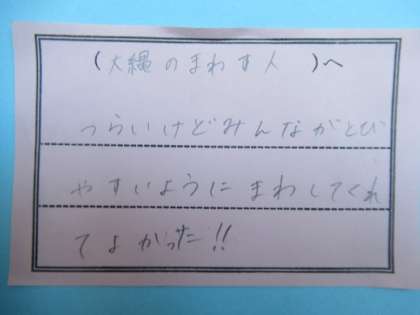 (大縄のまわす人　)へ
つらいけどみんながとび
やすいようにまわしてくれ
てよかった!!